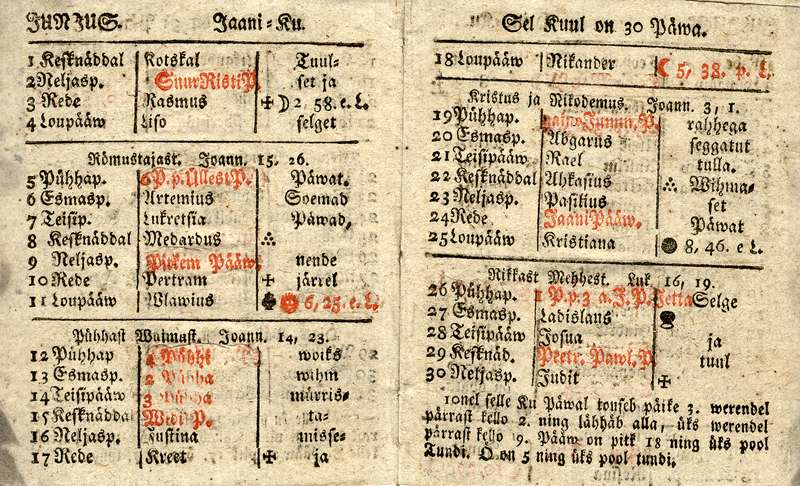 JUNJUS. Jaani-Ku.
1 Kesknäddal Kotskal Tuul-
2 Neljasp. Suur Risti P. set ja
3 Rede Rasmus 2, 58. e. L.
4 Loupääw Liso selget
Römustajast. Joann. 15, 26.
5 Pühhap. 6 P. p. Ullest P. Päwat.
6 Esmasp. Artemius Soemad
7 Teisip. Lukretsia Päwad,
8 Kesknäddal Medardus
9 Neljasp. Pitkem Pääw. nende
10 Rede Pertram järrel
11 Loupääw Wlawius 6, 25. e. L.
Pühhast Waimast. Joann. 14, 23.
12 Pühhap 1 Pühhi woiks
13 Esmasp. 2 Pühha wihm
14 Teisipääw 3 Pühha mürris-
15 Kesknäddal P. ta-
16 Neljasp. Justina misse-
17 Rede Kreet ja
Sel Kuul on 30 Päwa.
18 Loupääw Nikander 5, 38. p. L.
Kristus ja Nikodemus. Joann. 3, 1.
19 Pühhap. P. rahhega
20 Esmasp. Abgarus seggatut
21 Teisipääw Rael tulla.
22 Kesknäddal Ahkasius Wihma-
23 Neljasp. Pasilius set
24 Rede Jaani Pääw. Päwat
25 Loupääw Kristiana 8, 46. e L.
Rikkast Mehhest. Luk 16, 19.
26 Pühhap. 1 P. p. 3 a. J. P. Jetta Selge
27 Esmasp. Ladislaus
28 Teisipääw Josua ja
29 Kesknäd. Peetr. Pawl. P tuul
30 Neljasp. Judit
10nel selle Ku Päwal touseb päike 3. werendel
pärrast kello 2. ning lähhäb alla, üks werendel
pärrast kello 9. Pääw on pitk 18 ning üks pool
Tundi. O on 5 ning üks pool tundi.